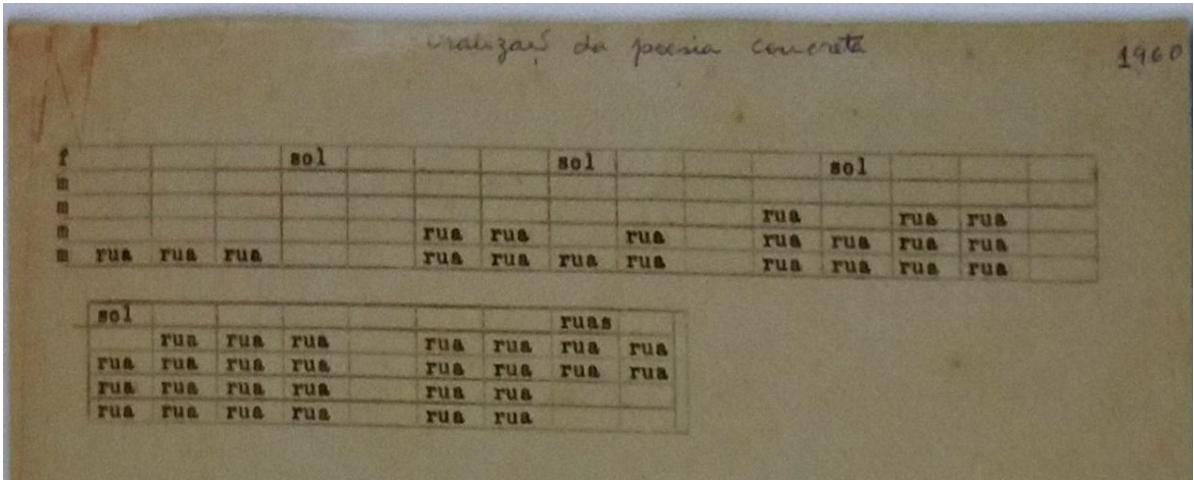 oralização da poesia concreta 1960
f sol sol sol
m
m rua rua rua
m rua rua rua rua rua rua rua
m rua rua rua rua rua rua rua rua rua rua rua
sol ruas
rua rua rua rua rua rua rua
rua rua rua rua rua rua rua rua
rua rua rua rua rua rua
rua rua rua rua rua rua